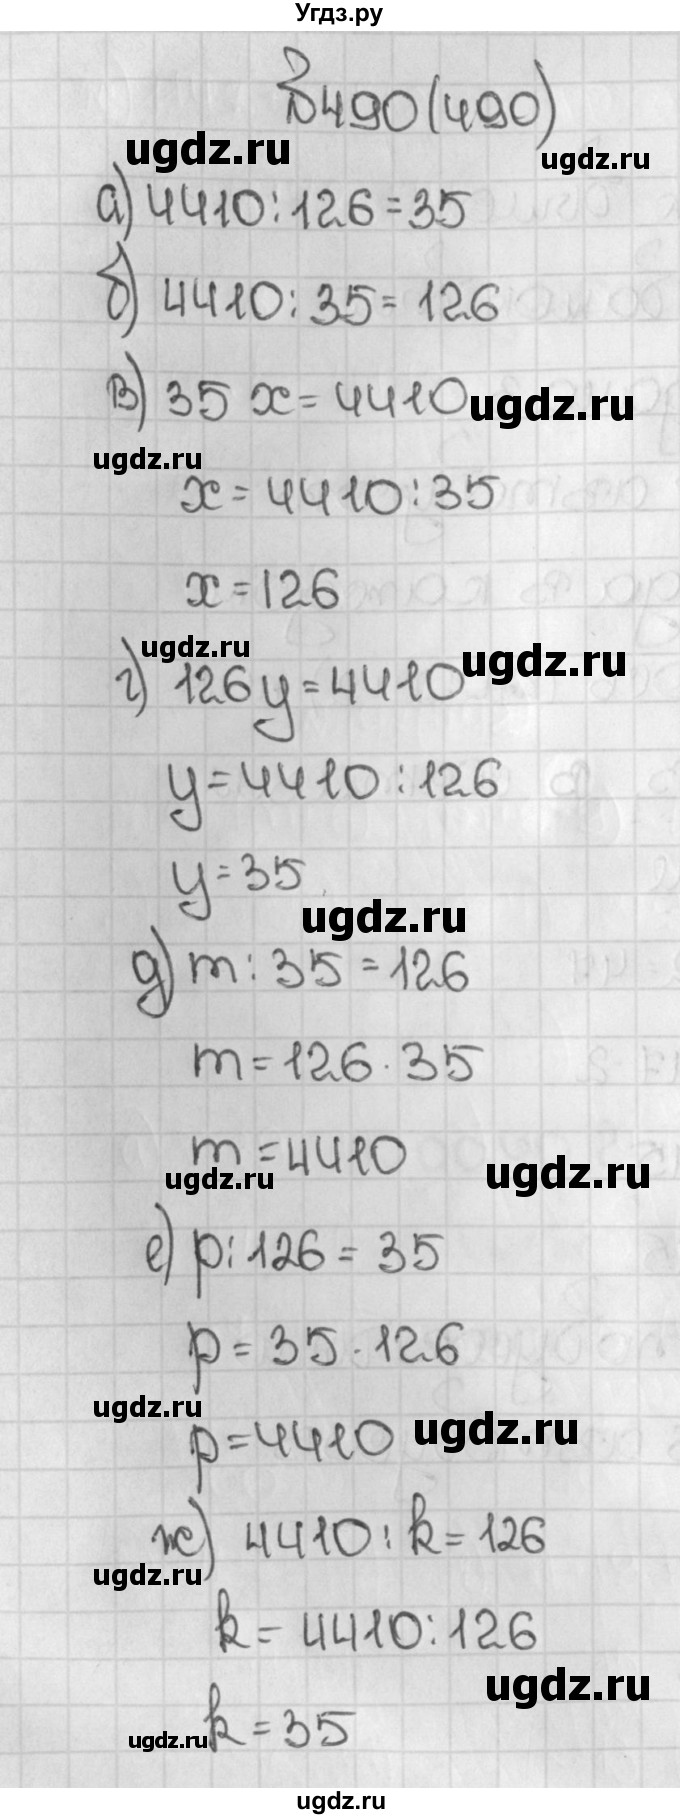 Угдз.ру
№490(490)
ugdz.ru
ugdz.ru
а) 4410:126=35
б) 4410:35=126
в) 35 x=4410
ugdz.ru
ugdz.ru
x=4410:35
x=126
ugdz.ru
ugdz.ru
г) 126y=4410
y=4410:126
y=35
ugdz.ru
д) m:35=126
m=126·35
m=4410
ugdz.ru
ugdz.ru
е) p:126=35
p=35·126
ugdz.ru
ugdz.ru
p=4410
ж) 4410:k=126
ugdz.ru
k=4410:126
ugdz.ru
k=35
ugdz.ru
ugdz.ru